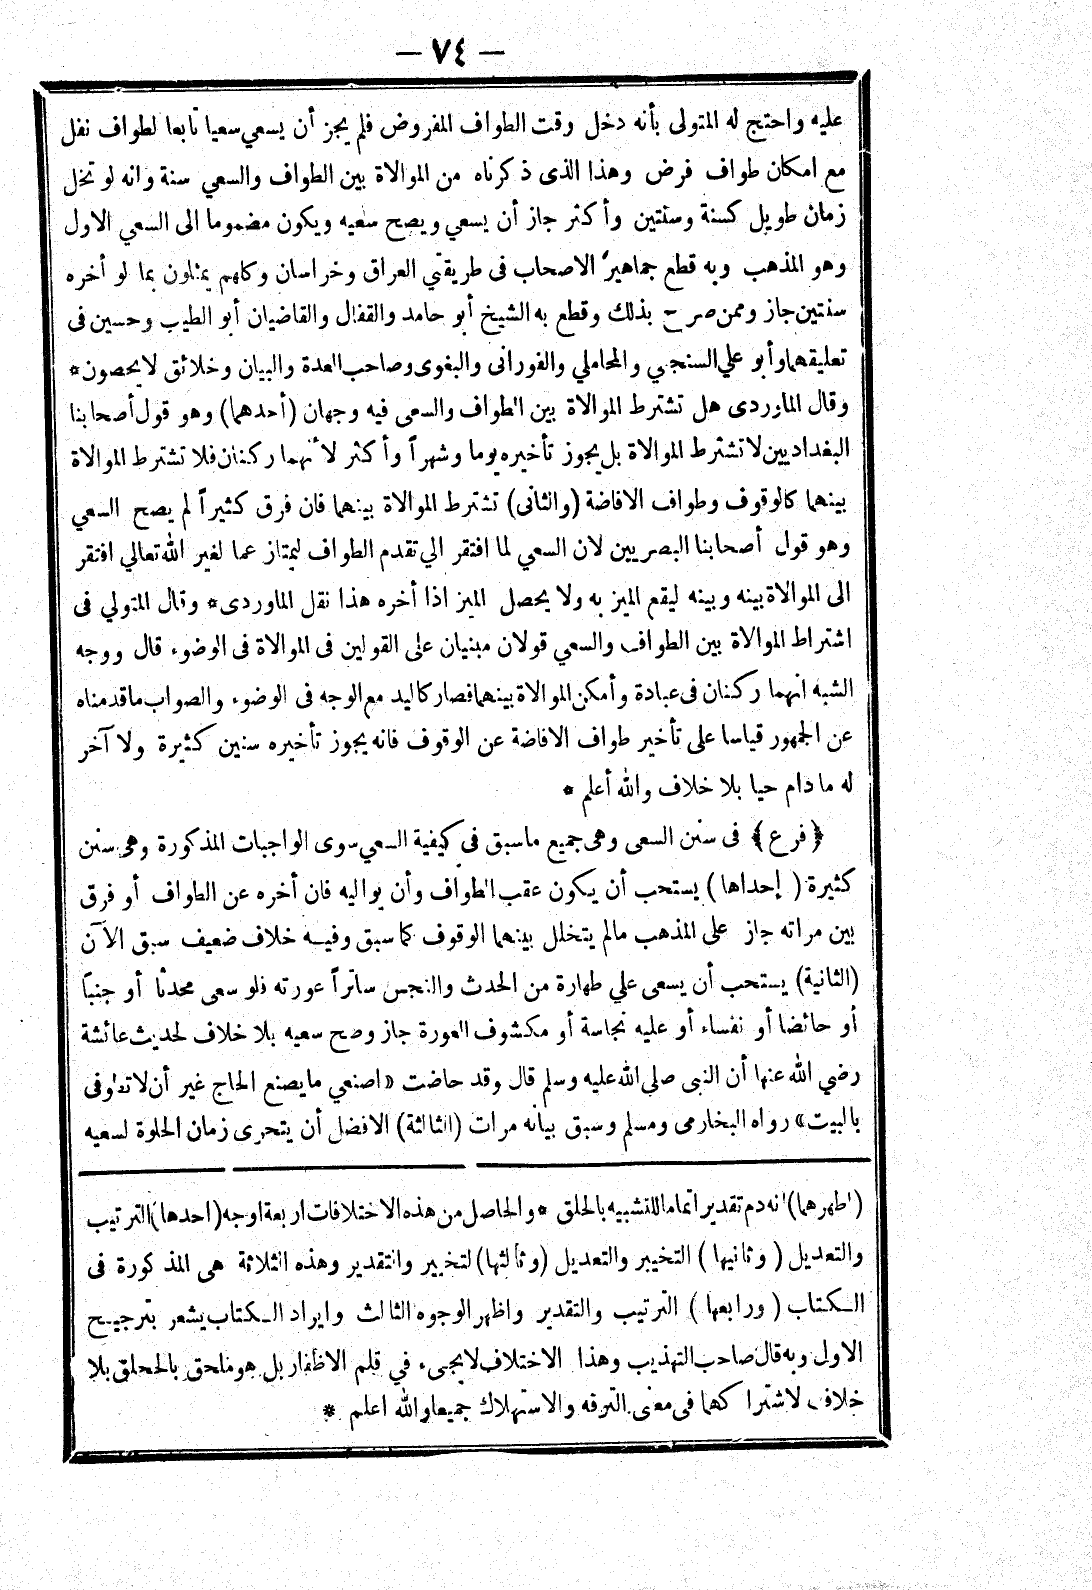 — ٧٤ —
عليه واحتج له المتولى بأنه دخل وقت الطواف المفروض فلم يجز أن يسعي سعيا تابعا لطواف نفل
مع امكان طواف فرض وهذا الذى ذكرناه من الموالاة بين الطواف والسعي سنة وانه لو تخلل
زمان طويل كسنة وسنتين وأكثر جاز أن يسعي ويصح سعيه ويكون مضموما الى السعي الاول
وهو المذهب وبه قطع جماهير الاصحاب فى طريقتي العراق وخراسان وكلهم يمثلون بما لو أخره
سنتين جاز وممن صرح بذلك وقطع به الشيخ أبو حامد والقفال والقاضيان أبو الطيب وحسين فى
تعليقهما وأبو علي السنجي والمحاملي والفورانى والبغوى وصاحب العدة والبيان وخلائق لا يحصون *
وقال الماوردى هل تشترط الموالاة بين الطواف والسعى فيه وجهان (أحدهما) وهو قول أصحابنا
البغداديين لا تشترط الموالاة بل يجوز تأخيره يوما وشهراً وأكثر لأنهما ركنان فلا تشترط الموالاة
بينهما كالوقوف وطواف الافاضة (والثانى) تشترط الموالاة بينهما فان فرق كثيراً لم يصح السعي
وهو قول أصحابنا البصريين لان السعي لما افتقر الي تقدم الطواف ليمتاز عما لغير الله تعالي افتقر
الى الموالاة بينه وبينه ليقع الميز به ولا يحصل الميز اذا أخره هذا نقل الماوردى * وقال المتولي فى
اشتراط الموالاة بين الطواف والسعي قولان مبنيان على القولين فى الموالاة فى الوضوء قال ووجه
الشبه انهما ركنان فى عبادة وأمكن الموالاة بينهما فصار كاليد مع الوجه فى الوضوء والصواب ما قدمناه
عن الجمهور قياسا على تأخير طواف الافاضة عن الوقوف فانه يجوز تأخيره سنين كثيرة ولا آخر
له ما دام حيا بلا خلاف والله أعلم *
﴿فرع﴾ فى سنن السعى وهى جميع ما سبق فى كيفية السعي سوى الواجبات المذكورة وهى سنن
كثيرة (إحداها) يستحب أن يكون عقب الطواف وأن يواليه فان أخره عن الطواف أو فرق
بين مراته جاز على المذهب ما لم يتخلل بينهما الوقوف كما سبق وفيه خلاف ضعيف سبق الآن
(الثانية) يستحب أن يسعى علي طهارة من الحدث والنجس ساتراً عورته فلو سعى محدثا أو جنبًا
أو حائضا أو نفساء أو عليه نجاسة أو مكشوف العورة جاز وصح سعيه بلا خلاف لحديث عائشة
رضي الله عنها أن النبى صلي الله عليه وسلم قال وقد حاضت «اصنعي ما يصنع الحاج غير أن لا تطوفى
بالبيت» رواه البخارى ومسلم وسبق بيانه مرات (الثالثة) الافضل أن يتحرى زمان الخلوة لسعيه
(اظهرهما) انه دم تقدير اتماما للتشبيه بالحلق * والحاصل من هذه الاختلافات اربعة اوجه (احدها) الترتيب
والتعديل (وثانيها) التخيير والتعديل (وثالثها) التخيير والتقدير وهذه الثلاثة هى المذكورة فى
الكتاب (ورابعها) الترتيب والتقدير واظهر الوجوه الثالث وايراد الكتاب يشعر بترجيح
الاول وبه قال صاحب التهذيب وهذا الاختلاف لا يجيء في قلم الاظفار بل هو ملحق بالحلق بلا
خلاف لاشتراكهما فى معنى الترفه والاستهلاك جميعا والله اعلم *